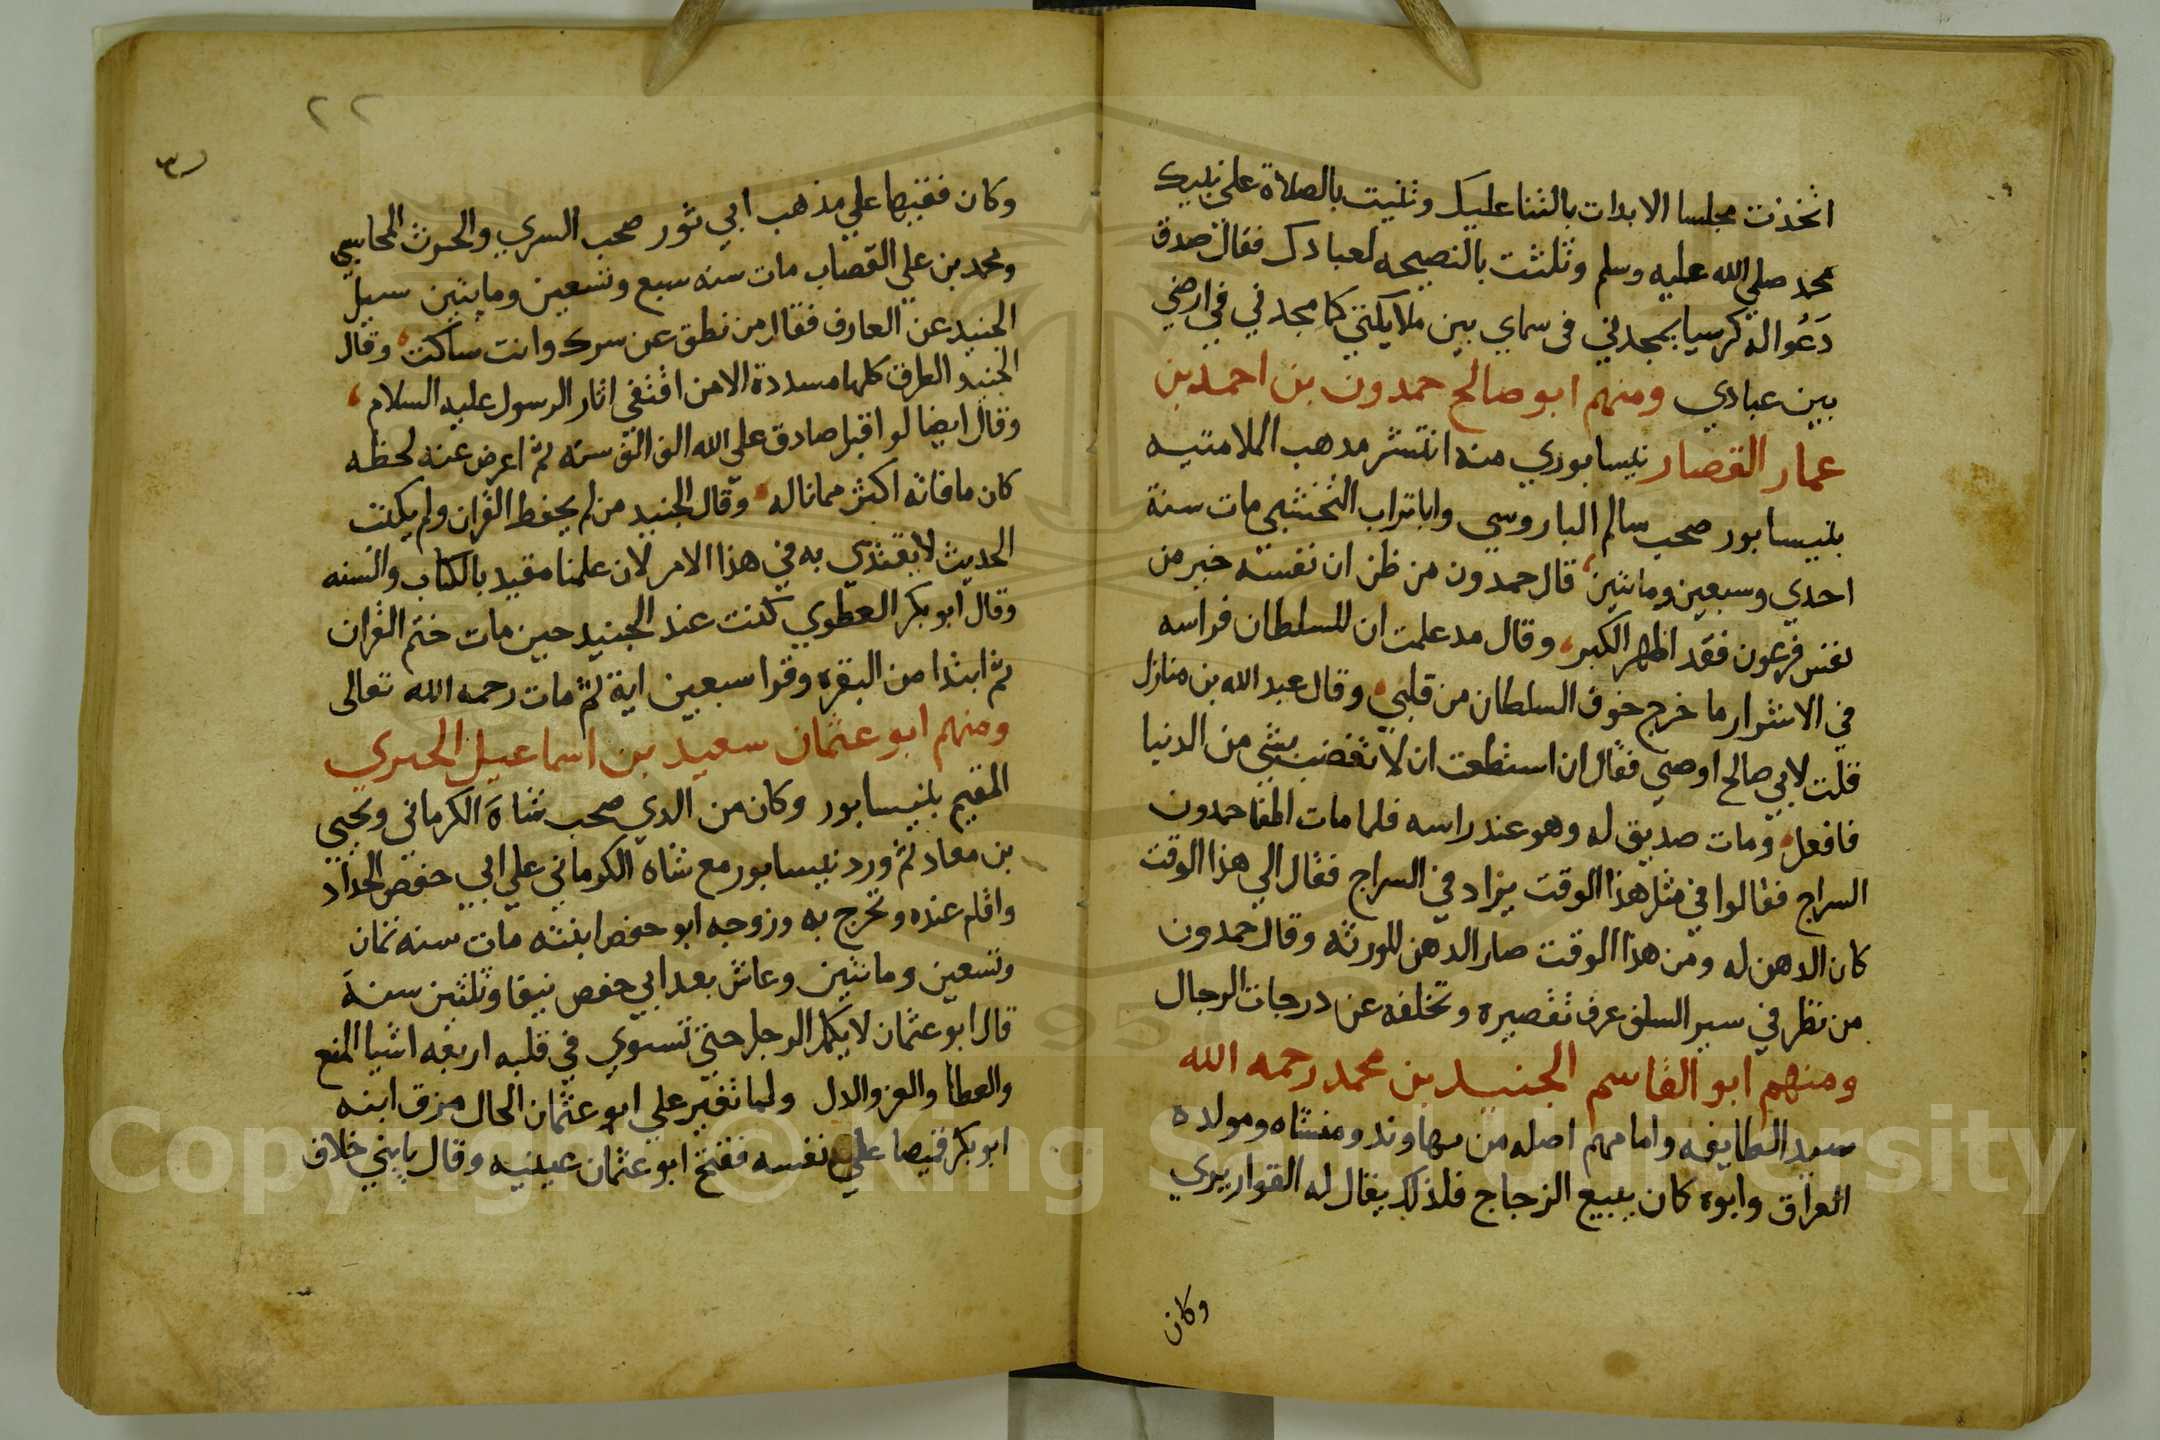 اتخذت مجلسا الا بدات بالثنا عليك وثنيت بالصلاة على نبيك
محمد صلي الله عليه وسلم وثلثت بالنصيحه لعبادك فقال صدق
دَعُوا له كرسيا يمجدني في سماي بين ملايكتي كما مجدني في ارضي
بين عبادي ومنهم ابو صالح حمدون بن احمد بن
عمار القصار نيسابوري منه انتشر مدهب الملامتيه
بنيسابور صحب سالم الباروسي وابا تراب النخشبي مات سنة
احدي وسبعين وماتين قال حمدون من ظن ان نفسه خير من
نفس فرعون فقد اظهر الكبر وقال مد علمت ان للسلطان فراسه
في الاشرار ما خرج خوف السلطان من قلبي وقال عبد الله بن منازل
قلت لابي صالح اوصني فقال ان استطعت ان لا تغضب بشي من الدنيا
فافعل ومات صديق له وهو عند راسه فلما مات اطفا حمدون
السراج فقالوا في مثل هذا الوقت يزاد في السراج فقال الي هذا الوقت
كان الدهن له ومن هذا الوقت صار الدهن للورثه وقال حمدون
من نظر في سير السلف عرف تقصيره وتخلفه عن درجات الرجال
ومنهم ابو القاسم الجنيد بن محمد رحمه الله
سيد الطايفه وامامهم اصله من نهاوند ومنشاه ومولده
العراق وابوه كان يبيع الزجاج فلذلك يقال له القواريري
وكان
٢٢
وكان فقيها علي مذهب ابي ثور صحب السري والحرث المحاسبي
ومحمد بن علي القصاب مات سنه سبع وتسعين ومايتين سيل
الجنيد عن العارف فقال من نطق عن سرك وانت ساكت وقال
الجنيد الطرق كلها مسددة الا من اقتفي اثار الرسول عليه السلام
وقال ايضا لو اقبل صادق علي الله الف الف سنه ثم اعرض عنه لحظه
كان ما فاته اكثر مما ناله وقال الجنيد من لم يحفظ القران ولم يكتب
الحديث لا يقتدي به في هذا الامر لان علمنا مقيد بالكتاب والسنه
وقال ابو بكر العطوي كنت عند الجنيد حين مات ختم القران
ثم ابتدا من البقره وقرا سبعين اية ثم مات رحمه الله تعالى
ومنهم ابو عثمان سعيد بن اسماعيل الحيري
المقيم بنيسابور وكان من الدي صحب شاه الكرماني ويحيي
بن معاد ثم ورد نيسابور مع شاه الكرماني علي ابي حفص الحداد
واقام عنده وتخرج به وزوجه ابو حفص ابنته مات سنه ثمان
وتسعين ومايتين وعاش بعد ابي حفص نيفا وثلثين سنة
قال ابو عثمان لا يكمل الرجل حتي تستوي في قلبه اربعه اشيا المنع
والعطا والعز والدل ولما تغير علي ابو عثمان الحال مزق ابنه
ابو بكر قميصا علي نفسه ففتح ابو عثمان عينيه وقال يا بني خلاف
Copyright © King Saud University